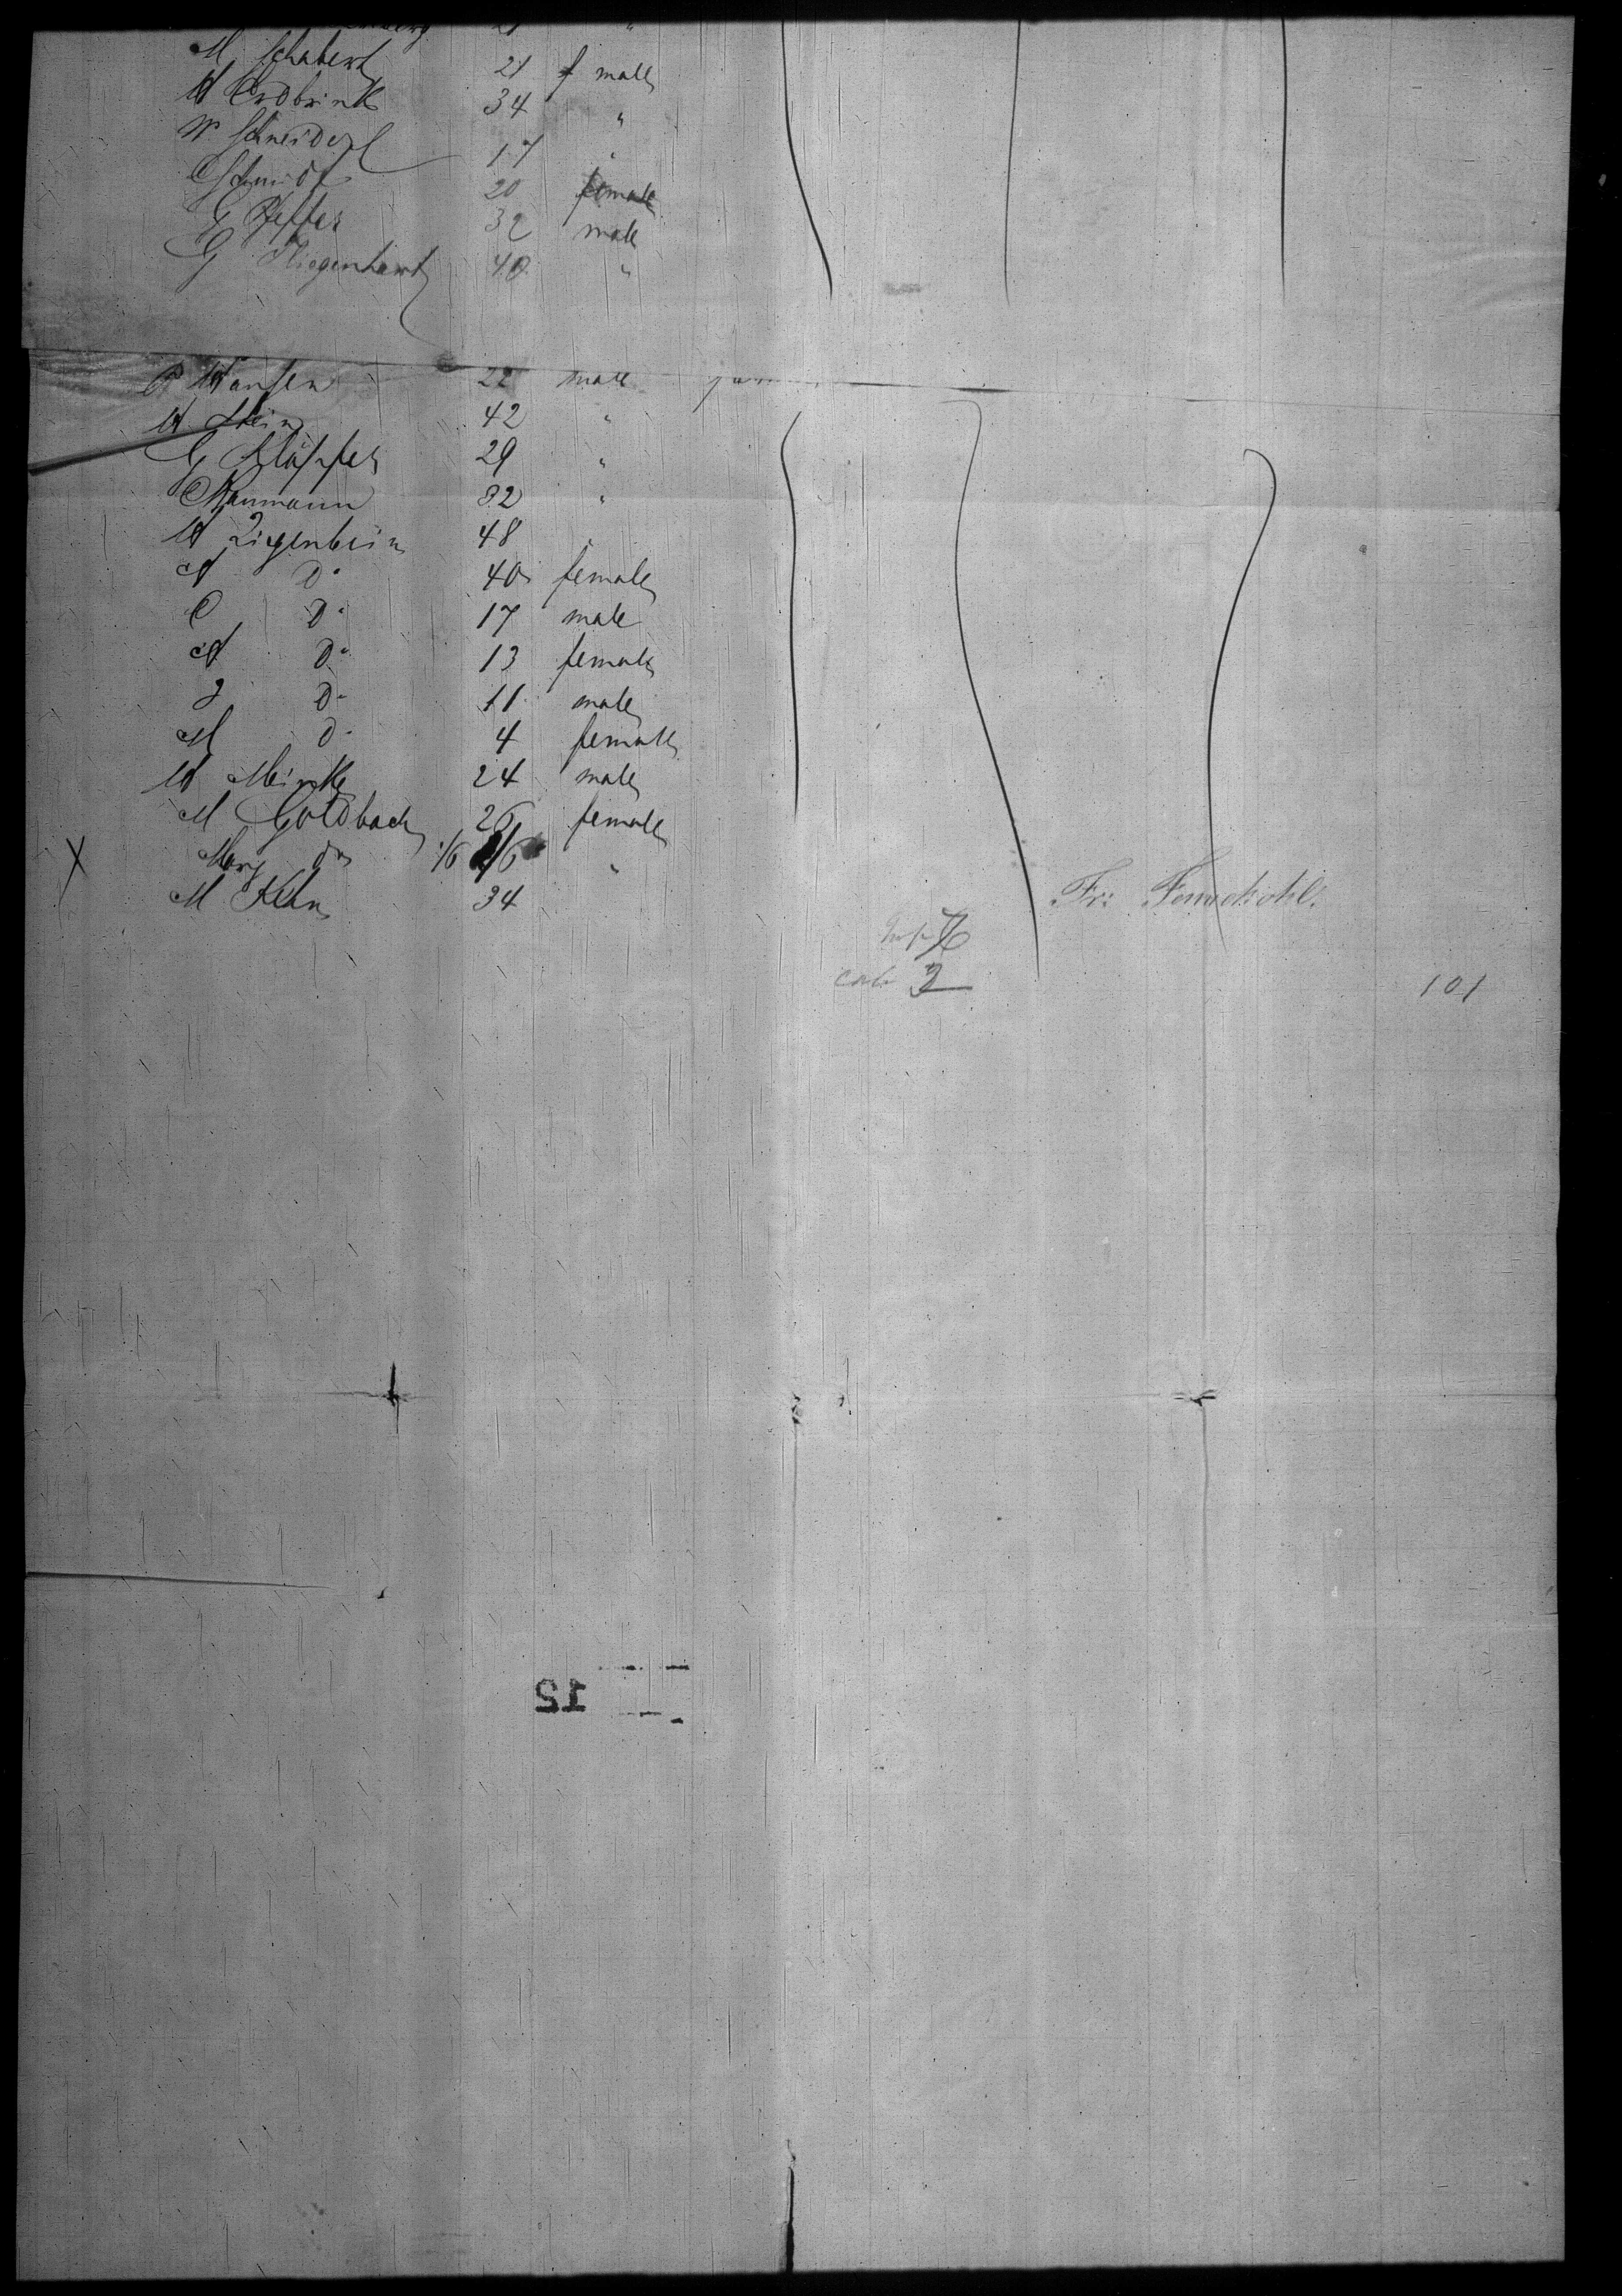 21 "
M Schabert 21 f male
H Erdbrink 34 "
W Schneider 17 "
C Schmidt 20 female
G Pfeffer 32 male
G Fliegenhart 40 "
P Hansen 22 male
H Stein 42 "
G 29 "
C Naumann 32 "
H Ziegenbein 48 "
A Do 40 female
C Do 17 male
A Do 13 female
J Do 11 male
M Do 4 female
H Meinke 24 male
M Goldbach 26 female
X Mary do 1/6 "
M Kehn 34
Fr:
cab 3
101
12